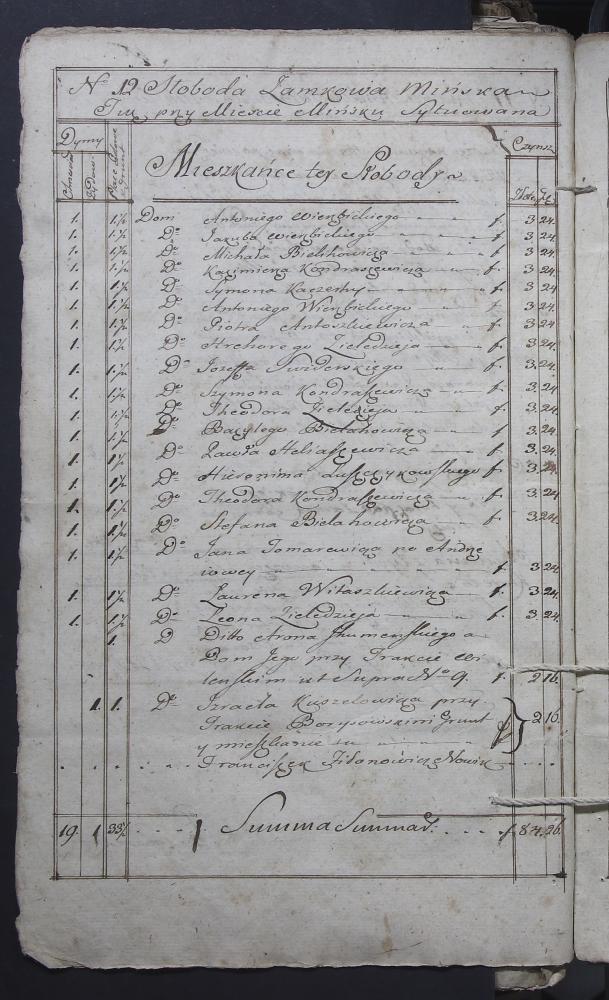 No 12 Słoboda Zamkowa Mińska
Tuż przy Mieście Mińsku Sytuowana
Dymy
Czynsz
Mieszkańce tey Słobody
1. 1½ Dom Antoniego Wierzbickiego f. 3 24.
1. 1½ Do Jakuba Wierzbickiego f. 3 24.
1. 1½ Do Michała Bielahowicza f. 3 24.
1. 1½ Do Kazimierza Kondraszewicza f. 3 24.
1. 1½ Do Symona f. 3 24.
1. 1½ Do Antoniego Wierzbickiego f. 3 24.
1. 1½ Do Piotra Antoszkiewicza f. 3 24.
1. 1½ Do Zieledzieja f. 3 24.
1. 1½ Do Jozeffa Swiderskiego f. 3 24.
1. 1½ Do Szymona Kondraszewicza f. 3 24.
1. 1½ Do Theodora Zieledzieja f. 3 24.
1. 1½ Do Bazylego Bielahowicza f. 3 24.
1. 1½ Do Pawła Heliaszewicza f. 3 24.
1. 1½ Do Hieronima f 3 24.
1. 1½ Do Theodora Kondraszewicza f. 3 24.
1. 1½ Do Stefana Bielahowicza f. 3 24.
1. 1½ Do Jana Tomarewicza po Andrze
iowey f. 3 24.
1. 1½ Do Laurena Witaszkiewicza f. 3 24.
1. 1½ Do Leona Zieledzieja f. 3 24.
1. D Ditto Arona Szumenskiego a
Dom Jego przy Trakcie Wi
lenskim ut Supra No 9. f. 2 16.
1. 1. Do Izraela Kuszelowicza przy
Trakcie Borysowskim Grunt f 2 16.
y mieszkanie
Franciszek
19. 1 33½ Summa Summar. f. 84. 26.